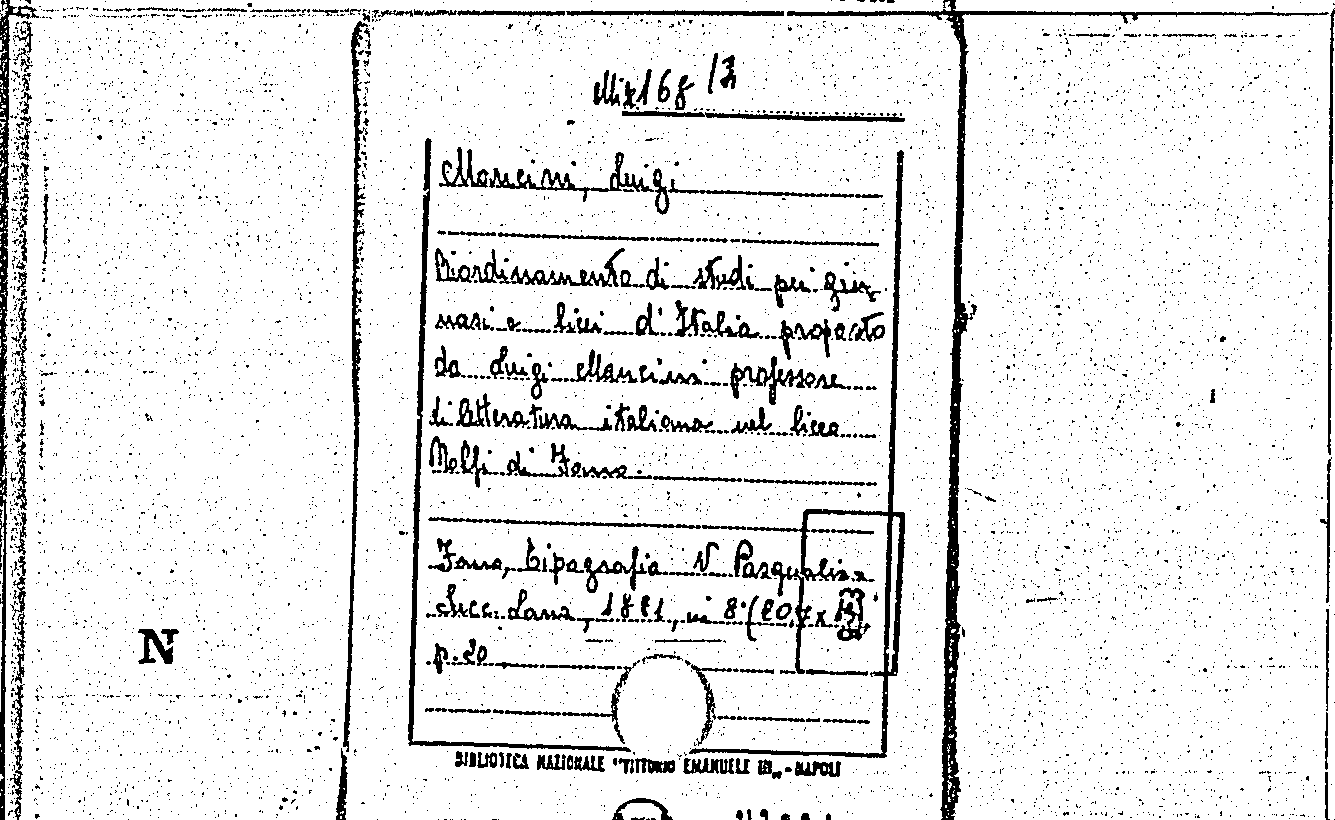 Mancini, Luigi
Riordinamento di studi pei gin-
nasi e licei d'Italia proposto
da Luigi Mancini professore
di letteratura italiana nel liceo
Nolfi di Fano.
Fano, Tipografia V Pasqualis
succ. Lana, 1881, in 8° (20,
p. 20
N
BIBLIOTECA NAZIONALE "VITTORIO EMANUELE III„ - NAPOLI